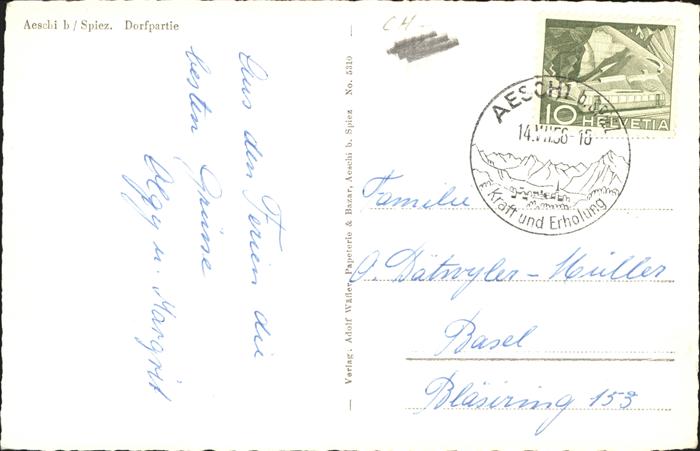 Aeschi b / Spiez. Dorfpartie
Aus den Ferien die
besten Grüsse
Olgy u. Margrit
Verlag: Adolf Wäfler, Papeterie & Bazar, Aeschi b. Spiez No. 5310
CH.
10 HELVETIA
AESCHI b. Spiez
14.VII.56-18
Kraft und Erholung
Familie
O. Dätwyler-Müller
Basel
Bläsiring 153